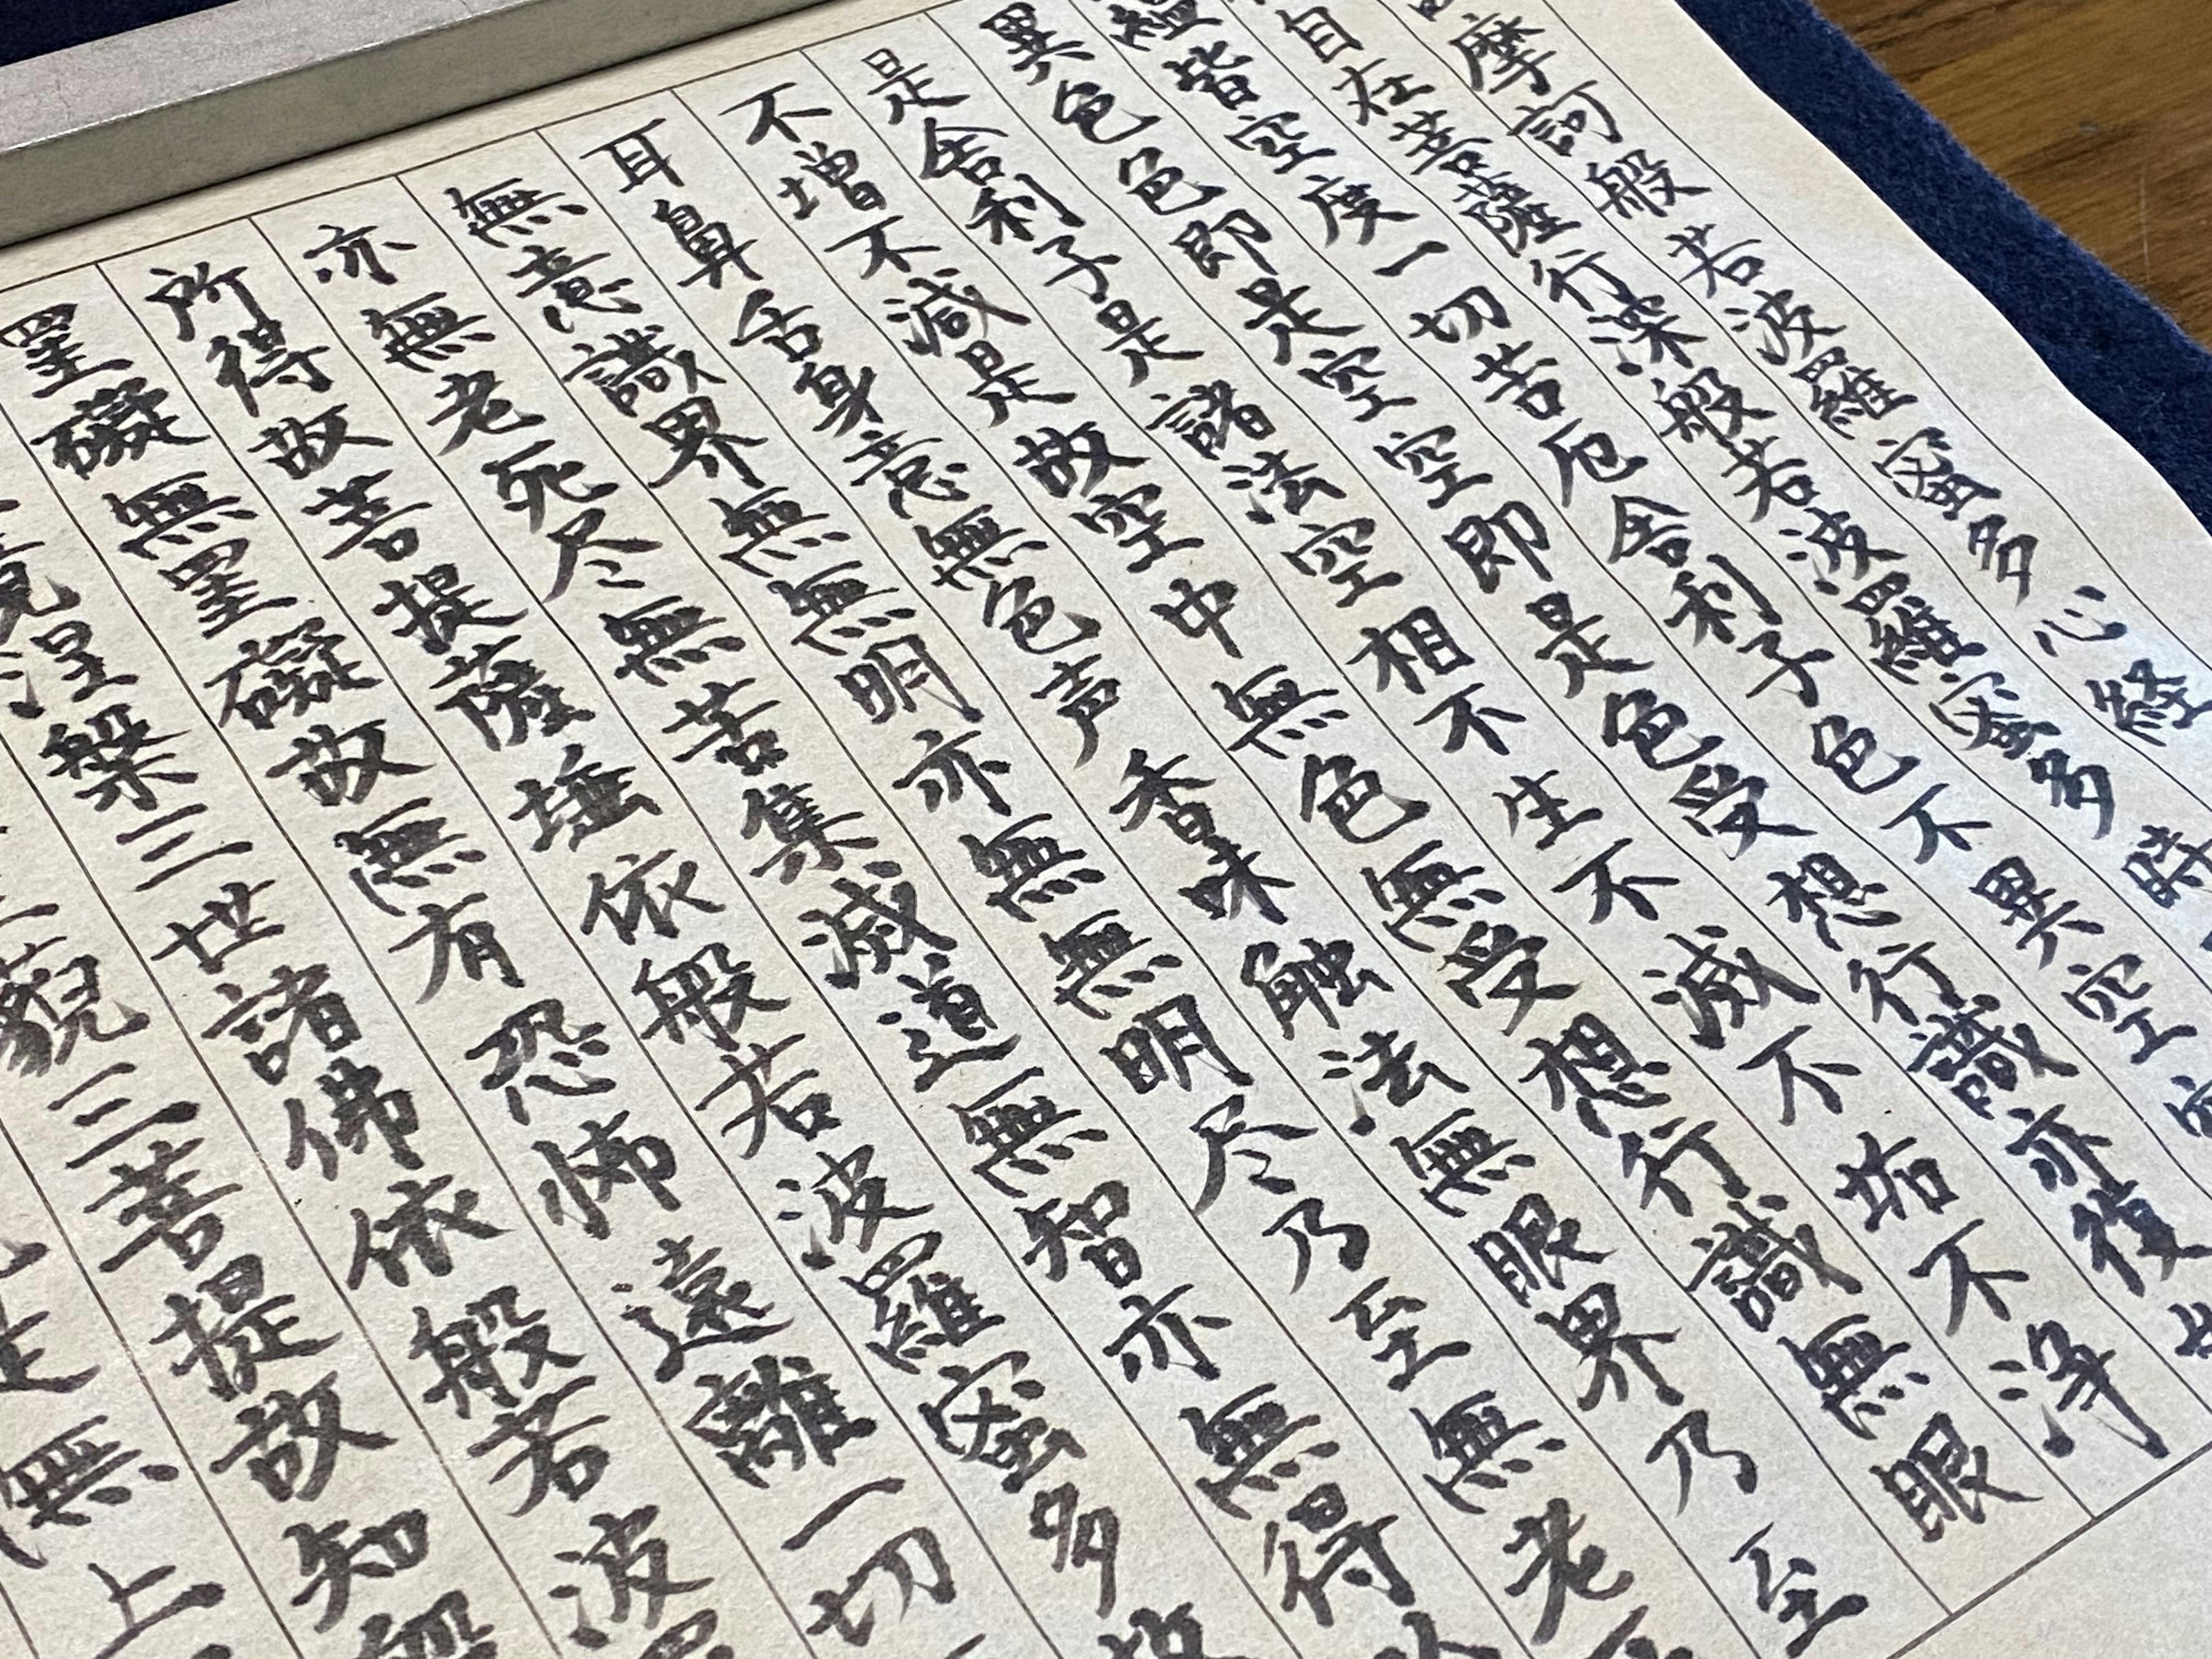 摩訶般若波羅蜜多心経
自在菩薩行深般若波羅蜜多時
蘊皆空度一切苦厄舎利子色不異空空
異色色即是空空即是色受想行識亦復如
是舎利子是諸法空相不生不滅不垢不浄
不増不減是故空中無色無受想行識無眼
耳鼻舌身意無色声香味触法無眼界乃至
無意識界無無明亦無無明尽乃至無老死
亦無老死尽無苦集滅道無智亦無得以
所得故菩提薩埵依般若波羅蜜多故
罣礙無罣礙故無有恐怖遠離一切
竟涅槃三世諸佛依般若波羅
藐三菩提故知般
是無上